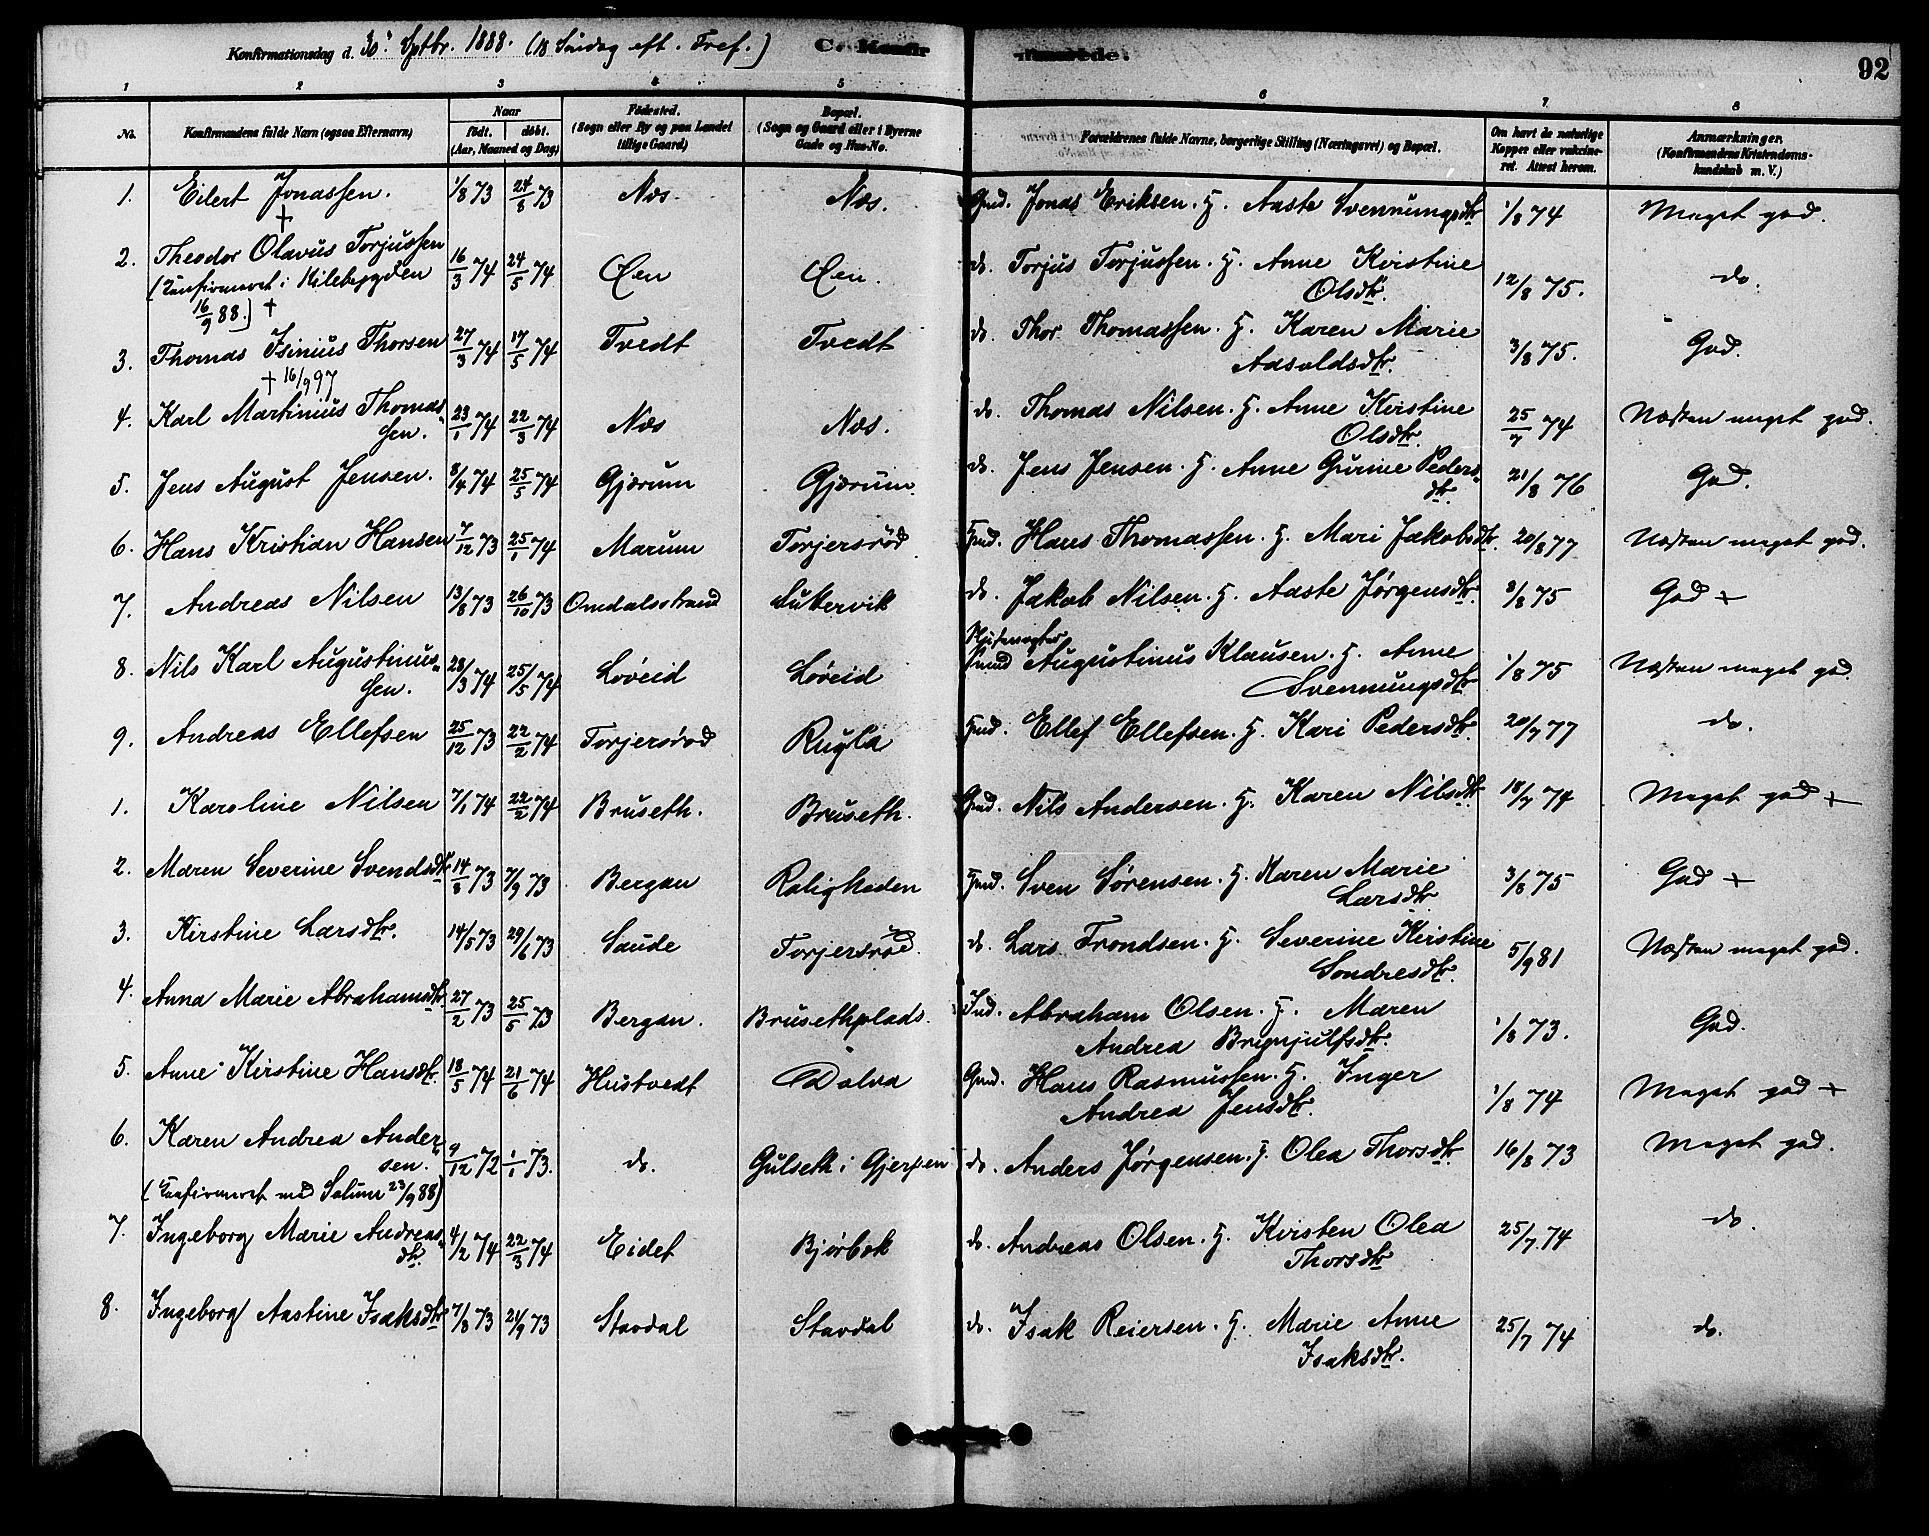 Konfirmationsdag d. 30. Septbr. 1888. (18 Søndag eft. Tref.) C. Konfirmerede. 92
1 2 3 4 5 6 7 8
No. Konfirmandens fulde Navn (ogsaa Efternavn) Naar født. døbt. (Aar, Maaned og Dag) Fødested. (Sogn eller By og paa Landet tillige Gaard) Bopæl. (Sogn og Gaard eller i Byerne Gade og Hus-No. Forældrenes fulde Navne, borgerlige Stilling (Næringsvei) og Bopæl. Om havt de naturlige Kopper eller vakcineret. Attest herom. Anmærkninger. (Konfirmandens Kristendomskundskab m. V.)
1. Eilert Jonassen. 1/8 73 24/8 73 Næs Næs. Gmd. Jonas Eriksen. H. Aaste Svennungsdtr 1/8 74 Meget god.
+
2. Theodor Olavus Torjussen 16/3 74 24/5 74 Øen Øen. do. Torjus Torjussen. H. Anne Kirstine Olsdtr. 12/8 75. do.
(Konfirmeret i Kilebygden
16/9 88.) +
3. Thomas Isinius Thorsen 27/3 74 17/5 74 Tvedt Tvedt do Thor Thomassen. H. Karen Marie Aasoldsdtr. 3/8 75. God.
+ 16/9 97
4. Karl Martinius Thomassen. 23/1 74 22/3 74 Næs Næs. do. Thomas Nilsen. H. Anne Kirstine Olsdtr. 25/7 74 Næsten meget god.
5. Jens August Jensen. 8/4 74 25/5 74 Gjærum Gjærum. do. Jens Jensen. H. Anne Gurine Pedersdtr. 21/8 76 God.
6. Hans Kristian Hansen 7/12 73 25/1 74 Marum Torjersrød Hans Thomassen. H. Mari Jakobsdtr. 20/8 77 Næsten meget god.
7. Andreas Nilsen 13/8 73 26/10 73 Omdalsstrand Lukervik do. Jakob Nilsen. H. Aaste Jørgensdtr. 3/8 75 God +
8. Nils Karl Augustinussen. 28/3 74 25/5 74 Løveid Løveid Augustinus Klausen. H. Anne Svennungsdtr 1/8 75 Næsten meget god.
9. Andreas Ellefsen 25/12 73 22/2 74 Torjersrød Rugla Ellef Ellefsen. H. Kari Pedersdtr. 20/7 77 do.
1. Karoline Nilsen 7/1 74 22/2 74 Bruseth. Bruseth. Gmd. Nils Andersen. H. Karen Nilsdtr 18/7 74 Meget god +
2. Maren Severine Svendsdtr 14/8 73 7/9 73 Bergan Roligheden Sven Sørensen. H. Karen Marie Larsdtr 3/8 75 God +
3. Kirstine Larsdtr. 14/5 73 29/6 73 Saude Torjersrød. do. Lars Trondsen. H. Severine Kirstine Sondresdtr. 5/9 81 Næsten meget god.
4. Anna Marie Abrahamsdtr. 27/2 73 25/5 73 Bergan. Brusethplads. Ind. Abraham Olsen. H. Maren Andrea Brynjulfsdtr. 1/8 73. God.
5. Anne Kirstine Hansdtr. 18/5 74 21/6 74 Hustvedt Dolva Gmd. Hans Rasmussen. H. Inger Andrea Jensdtr. 1/8 74 Meget god +
6. Karen Andrea Andersen. 9/12 72 1/1 73. do. Gulseth i Gjerpen do. Anders Jørgensen. H. Olea Thorsdtr 16/8 73 Meget god.
(Konfirmeret med Solum 23/9 88)
7. Ingeborg Marie Andreasdtr. 4/2 74 22/3 74 Eidet Bjørbæk do. Andreas Olsen. H. Kirsten Olea Thorsdtr 25/7 74 do.
8. Ingeborg Aastine Isaksdtr 7/8 73 21/9 73 Stavdal Stavdal do. Isak Reiersen. H. Marie Anne Isaksdtr. 25/7 74 do.